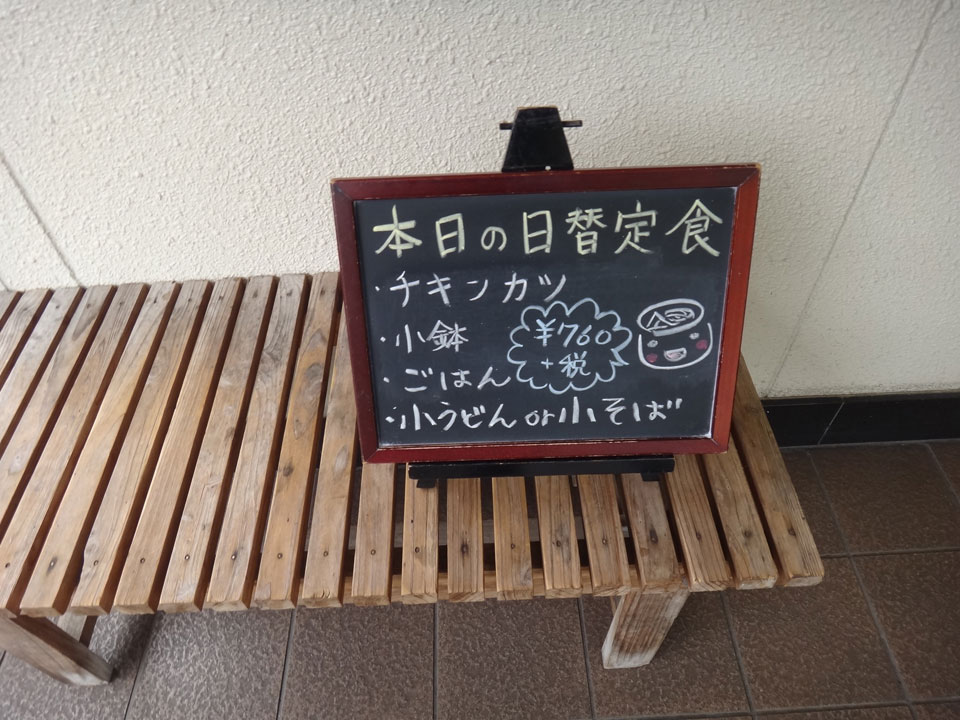 本日の日替定食
・チキンカツ
・小鉢
¥760
+税
・ごはん
・小うどんor小そば